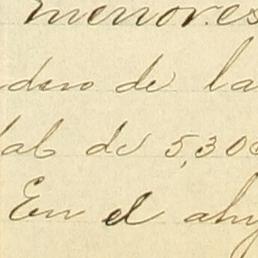 menores
dero de la
tal de 5,300
En el ahy